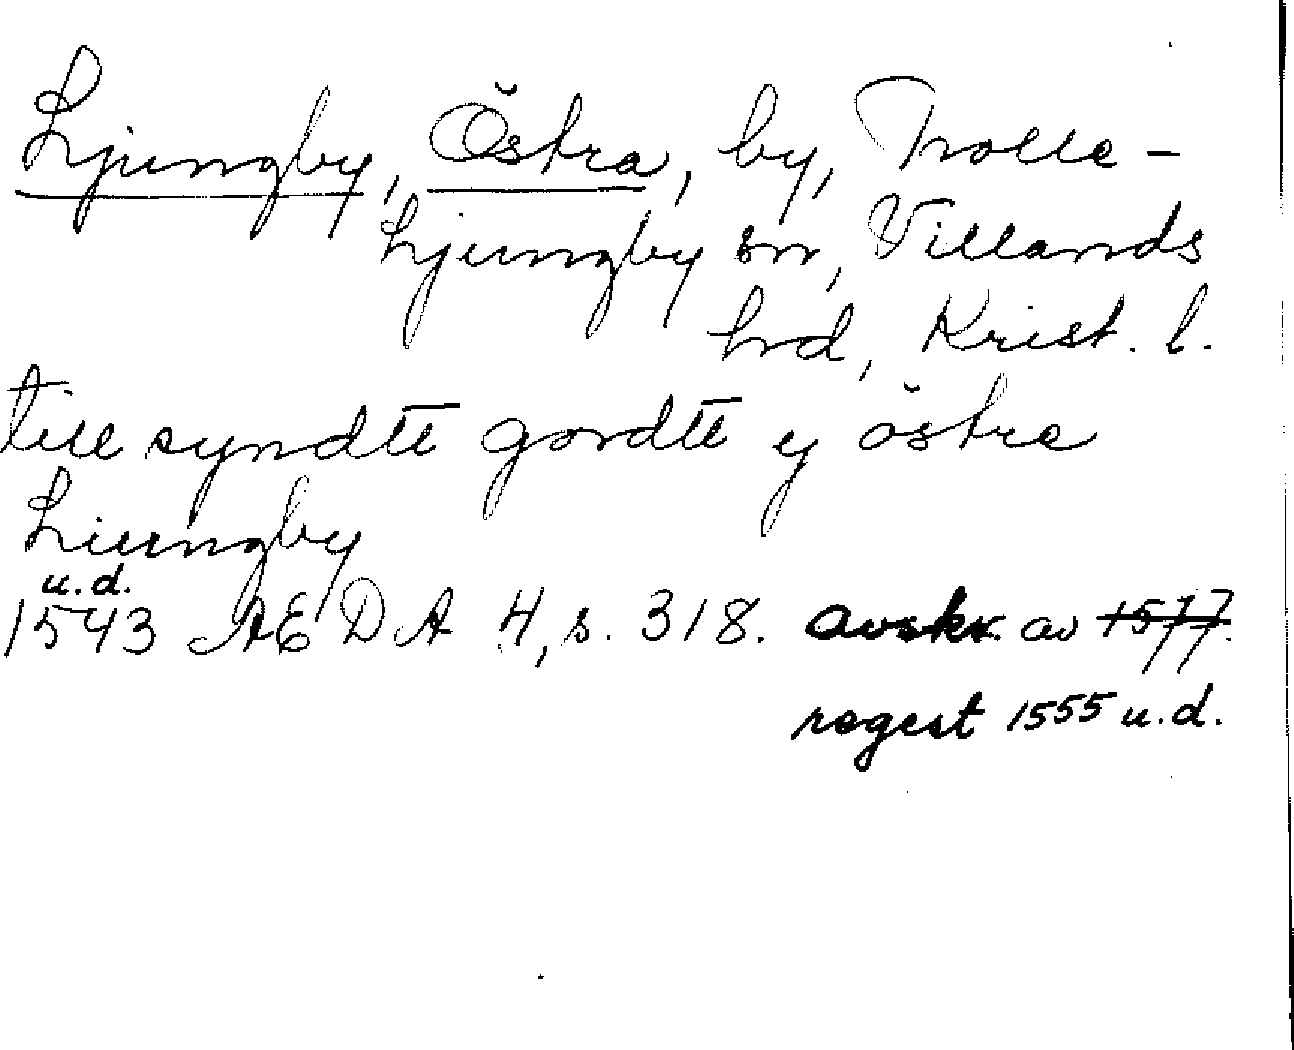 Ljungby, Östra, by, Trolle-
Ljungby sn, Villands
hrd, Krist. l.
till syndtē gordtē y östre
Liungby
u.d.
1543 AEDA 4, s. 318. avskr. av 1577.
regest 1555 u.d.